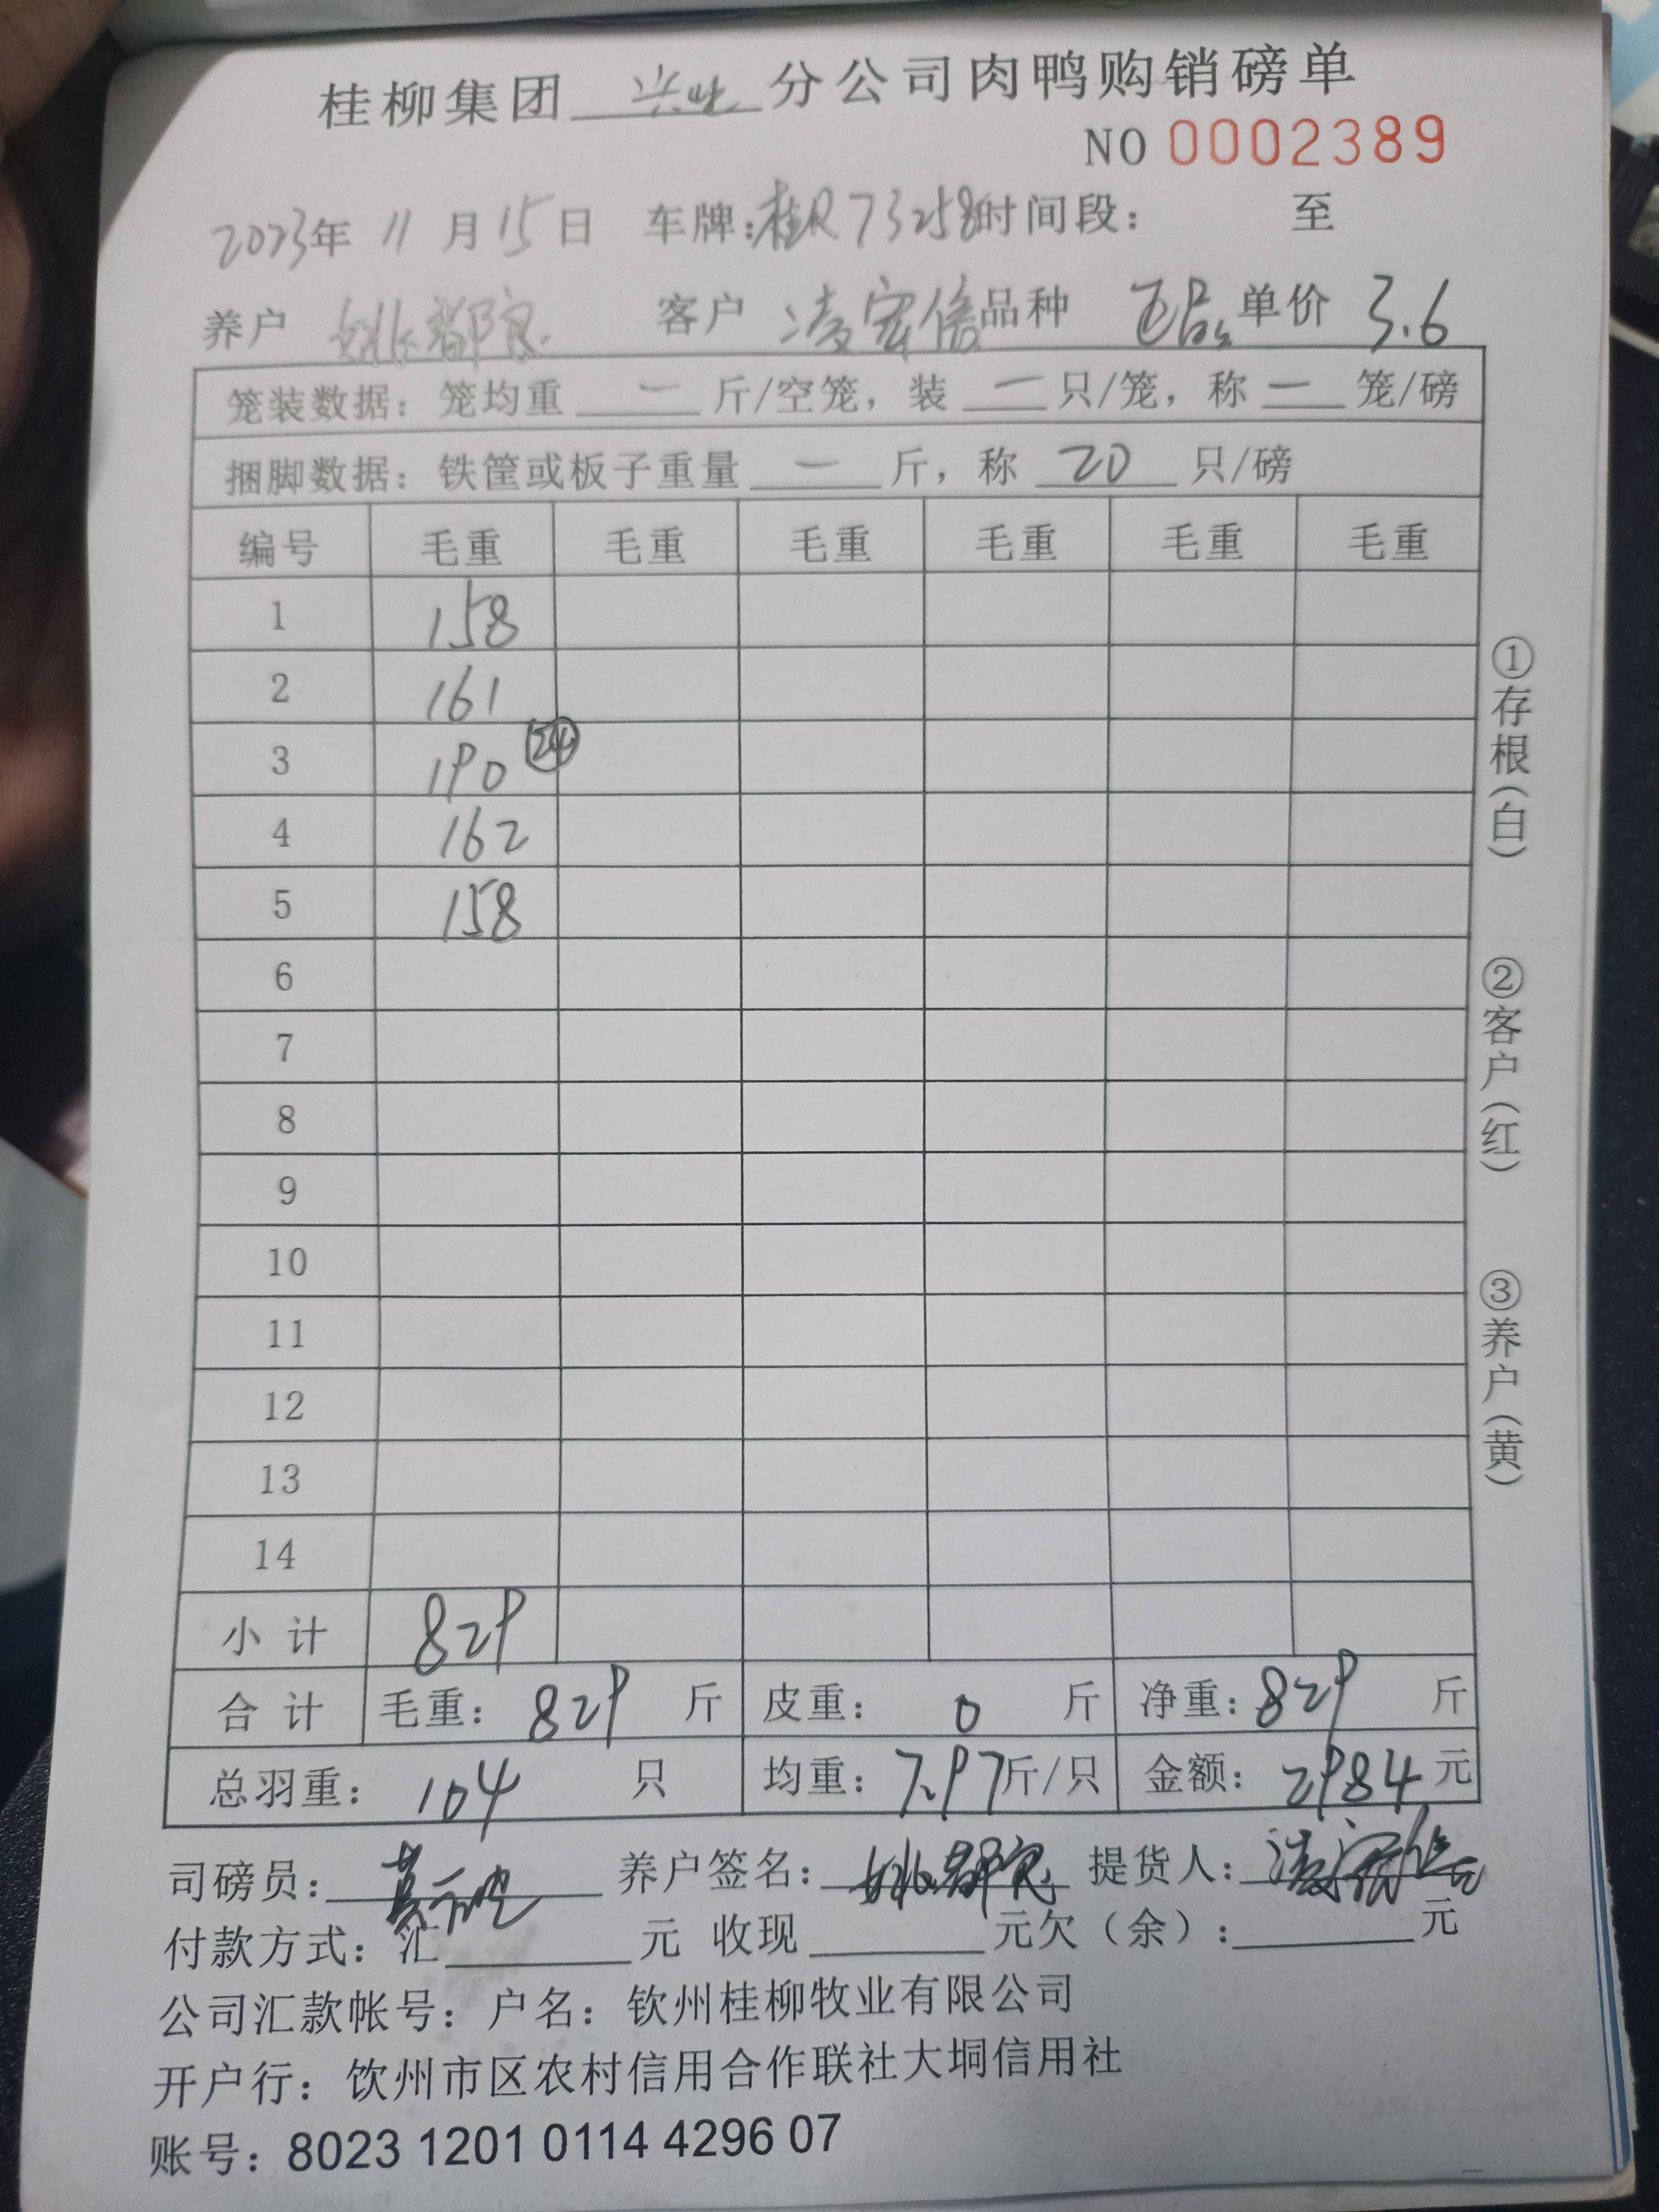 桂柳集团 兴业 分公司肉鸭购销磅单
NO 0002389
2023年 11 月 15 日 车牌:桂R73258 时间段: 至
养户 姚都良 客户 凌宏信 品种 单价 3.6
笼装数据: 笼均重 一 斤/空笼, 装 一 只/笼, 称 一 笼/磅
捆脚数据: 铁筐或板子重量 一 斤, 称 20 只/磅
编号 毛重 毛重 毛重 毛重 毛重 毛重
1 158
2 161
3 190 24
4 162
5 158
6
7
8
9
10
11
12
13
14
小计 829
合计 毛重: 829 斤 皮重: 0 斤 净重: 829 斤
总羽重: 104 只 均重: 7.97 斤/只 金额: 2984 元
司磅员: 养户签名: 姚都良 提货人: 凌宏信
付款方式: 汇 元 收现 元欠(余): 元
公司汇款帐号: 户名: 钦州桂柳牧业有限公司
开户行: 钦州市区农村信用合作联社大垌信用社
账号: 8023 1201 0114 4296 07
①存根(白)
②客户(红)
③养户(黄)